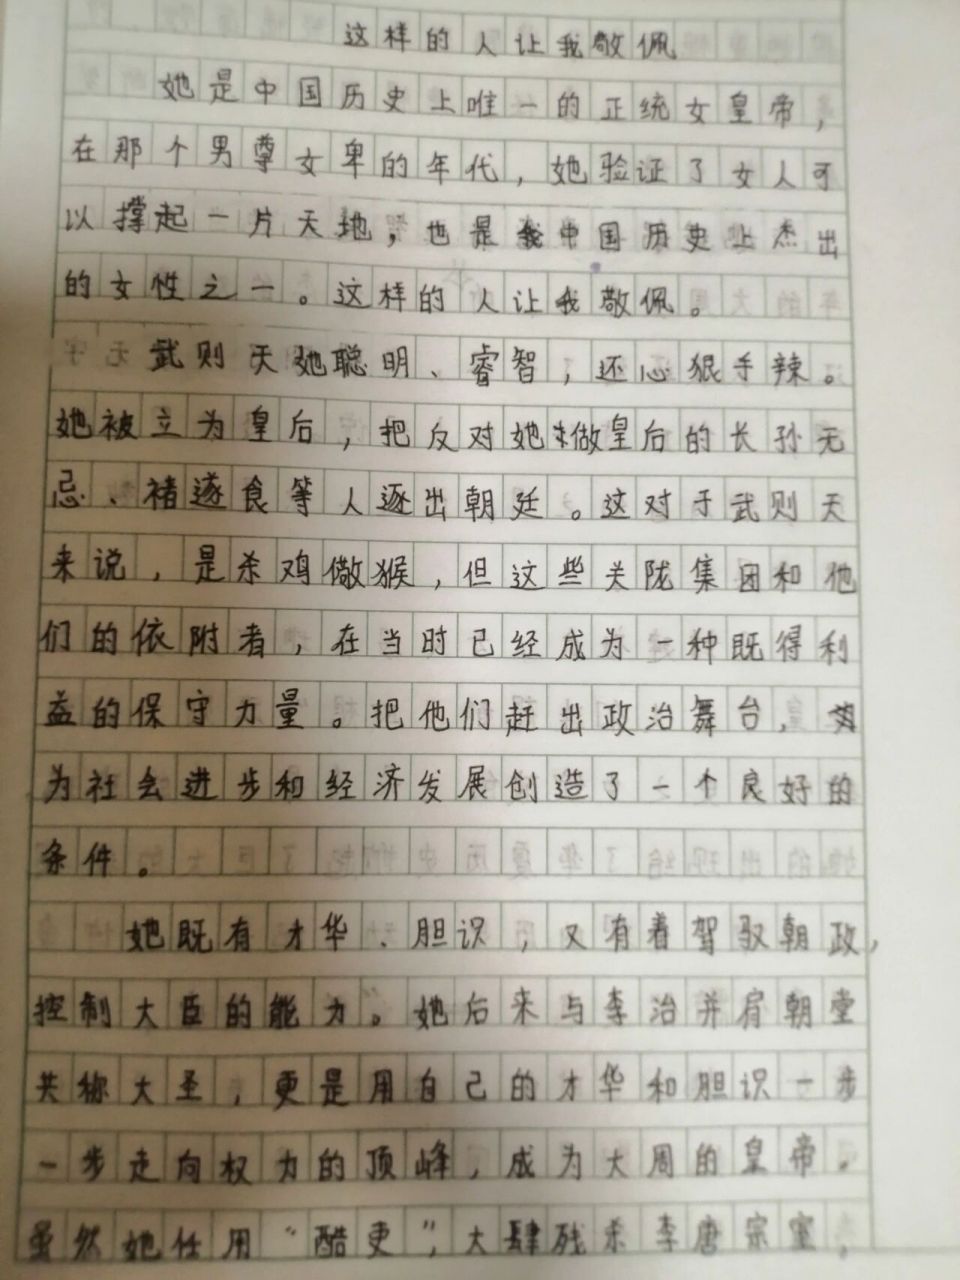 这样的人让我敬佩
她是中国历史上唯一的正统女皇帝，
在那个男尊女卑的年代，她验证了女人可
以撑起一片天地，也是中国历史上杰出
的女性之一。这样的人让我敬佩。
武则天她聪明、睿智，还心狠手辣。
她被立为皇后，把反对她做皇后的长孙无
忌、褚遂食等人逐出朝廷。这对于武则天
来说，是杀鸡儆猴，但这些关陇集团和他
们的依附者，在当时已经成为一种既得利
益的保守力量。把他们赶出政治舞台，
为社会进步和经济发展创造了一个良好的
条件。
她既有才华、胆识，又有着驾驭朝政，
控制大臣的能力”。她后来与李治并肩朝堂
共称大圣，更是用自己的才华和胆识一步
一步走向权力的顶峰，成为大周的皇帝。
虽然她任用“酷吏”，大肆残杀李唐宗室，